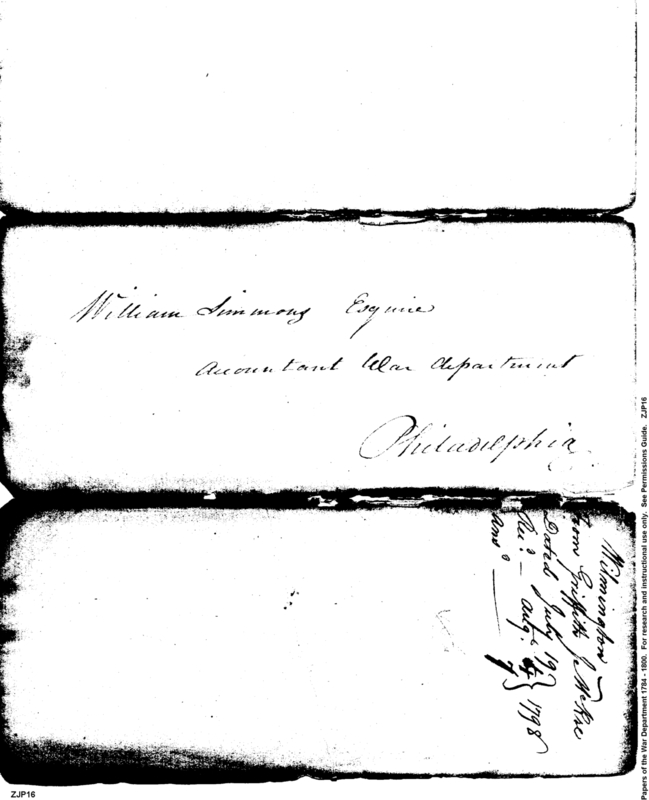 William Simmons Esquire
Accountant War department
Philadelphia
Wilmington
from Griffith J. McRee
Dated July 19
Recd. — Augt. 4 } 1798
Ansd. — 7
Papers of the War Department 1784 - 1800. For research and instructional use only. See Permissions Guide. ZJP16
ZJP16